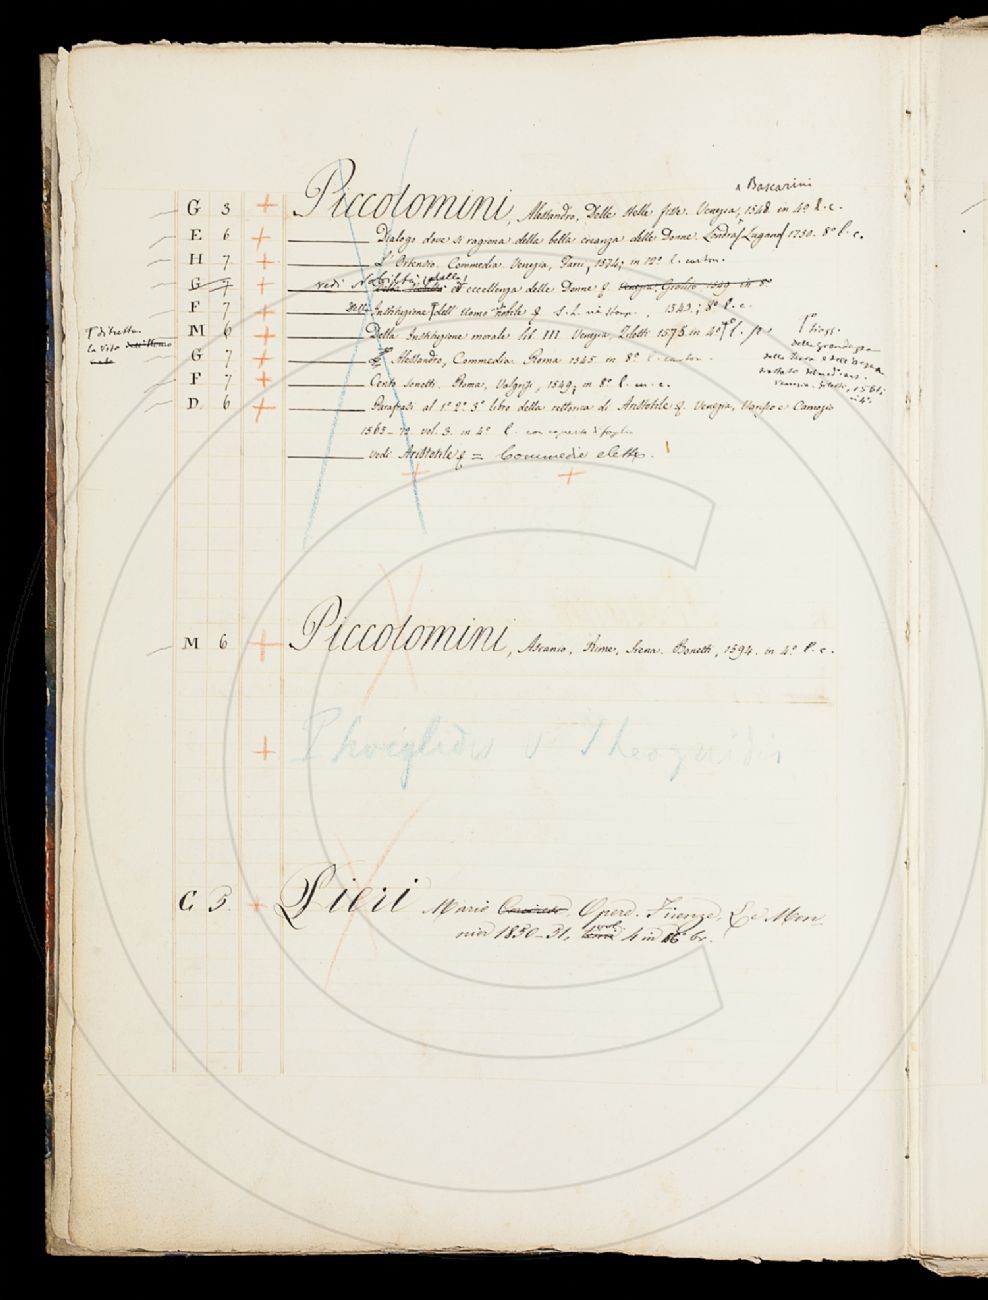 a Boscarini
G 3 + Piccolomini, Alessandro, Delle stelle fisse. Venezia, 1548. in 4° l. c.
E 6 + Dialogo dove si ragiona della bella creanza delle Donne. Londra, Lugano 1750. 8° l. c.
H 7 + L'Ortensio. Commedia. Venezia, 1574, in 12° l. carton.
G 7 + vedi Nobiltà, (della) ed eccellenza delle Donne & Venezia, Giolito 1549 in 8°
F 7 + Della Instituzione dell' uomo nobile & 1543, 8° l. c.
M 6 + Della Instituzione morale lib. III Venezia, Ziletti 1575 in 4° l. p.
della grandezza
della Terra e dell'acqua
trattato
Venezia. Ziletti, 1561,
in 4°.
la vita
G 7 + Alessandro, Commedia. Roma 1545. in 8° l. carton.
F 7 + Cento sonetti. Roma, Valgrisi, 1549, in 8° l. m. c.
D. 6 + Parafrasi al 1° 2° 3° libro della rettorica di Aristotile & Venezia, Varisco e
1565-72 vol. 3. in 4° l. con coperta di foglio
vedi Aristotele & = Commedie elette.
M 6 + Piccolomini, Ascanio, Rime, Siena. Bonetti, 1594. in 4° l. c.
+ Phocylides v. Theognidis
C. 5. + Pieri Mario Opere. Firenze, Le Mon
nier 1850-51, vol. 4 in 16° br.